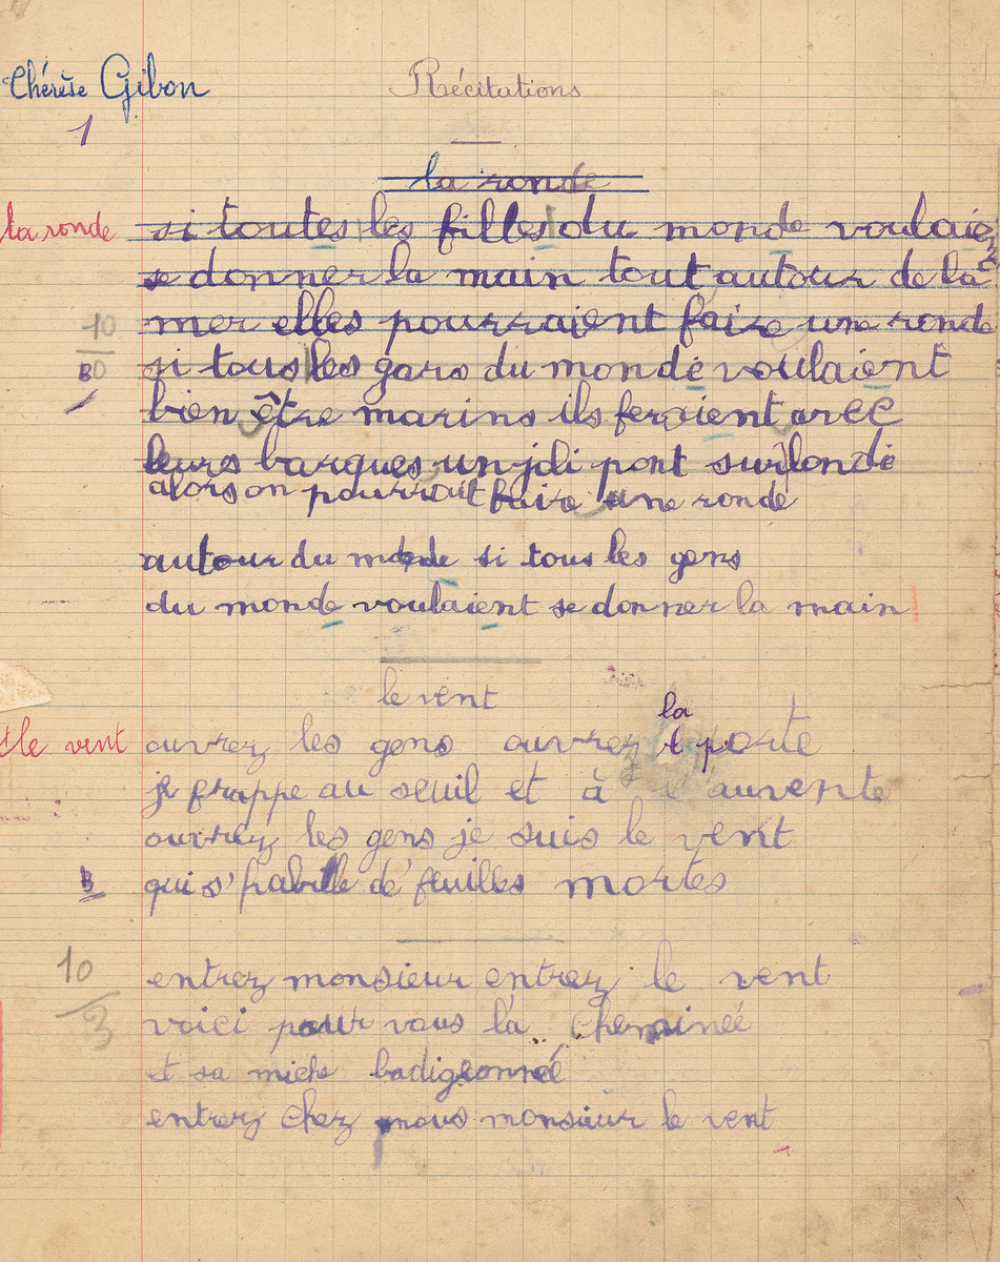 Thérèse Gibon
Récitations
1
la ronde
la ronde
si toutes les filles du monde voulaie
se donner la main tout autour de la
mer elles pourraient faire une ronde
10
si tous les gars du monde voulaient
B
bien être marins ils feraient avec
leurs barques un joli pont sur londe
alors on pourrait faire une ronde
autour du monde si tous les gens
du monde voulaient se donner la main
le vent
la
le vent
ouvrez les gens ouvrez porte
je frappe au seuil et à l'auvente
ouvrez les gens je suis le vent
B
qui s'habille de feuilles mortes
10
entrez monsieur entrez le vent
3
voici pour vous la cheminée
et sa miche badigeonné
entrez chez nous monsieur le vent